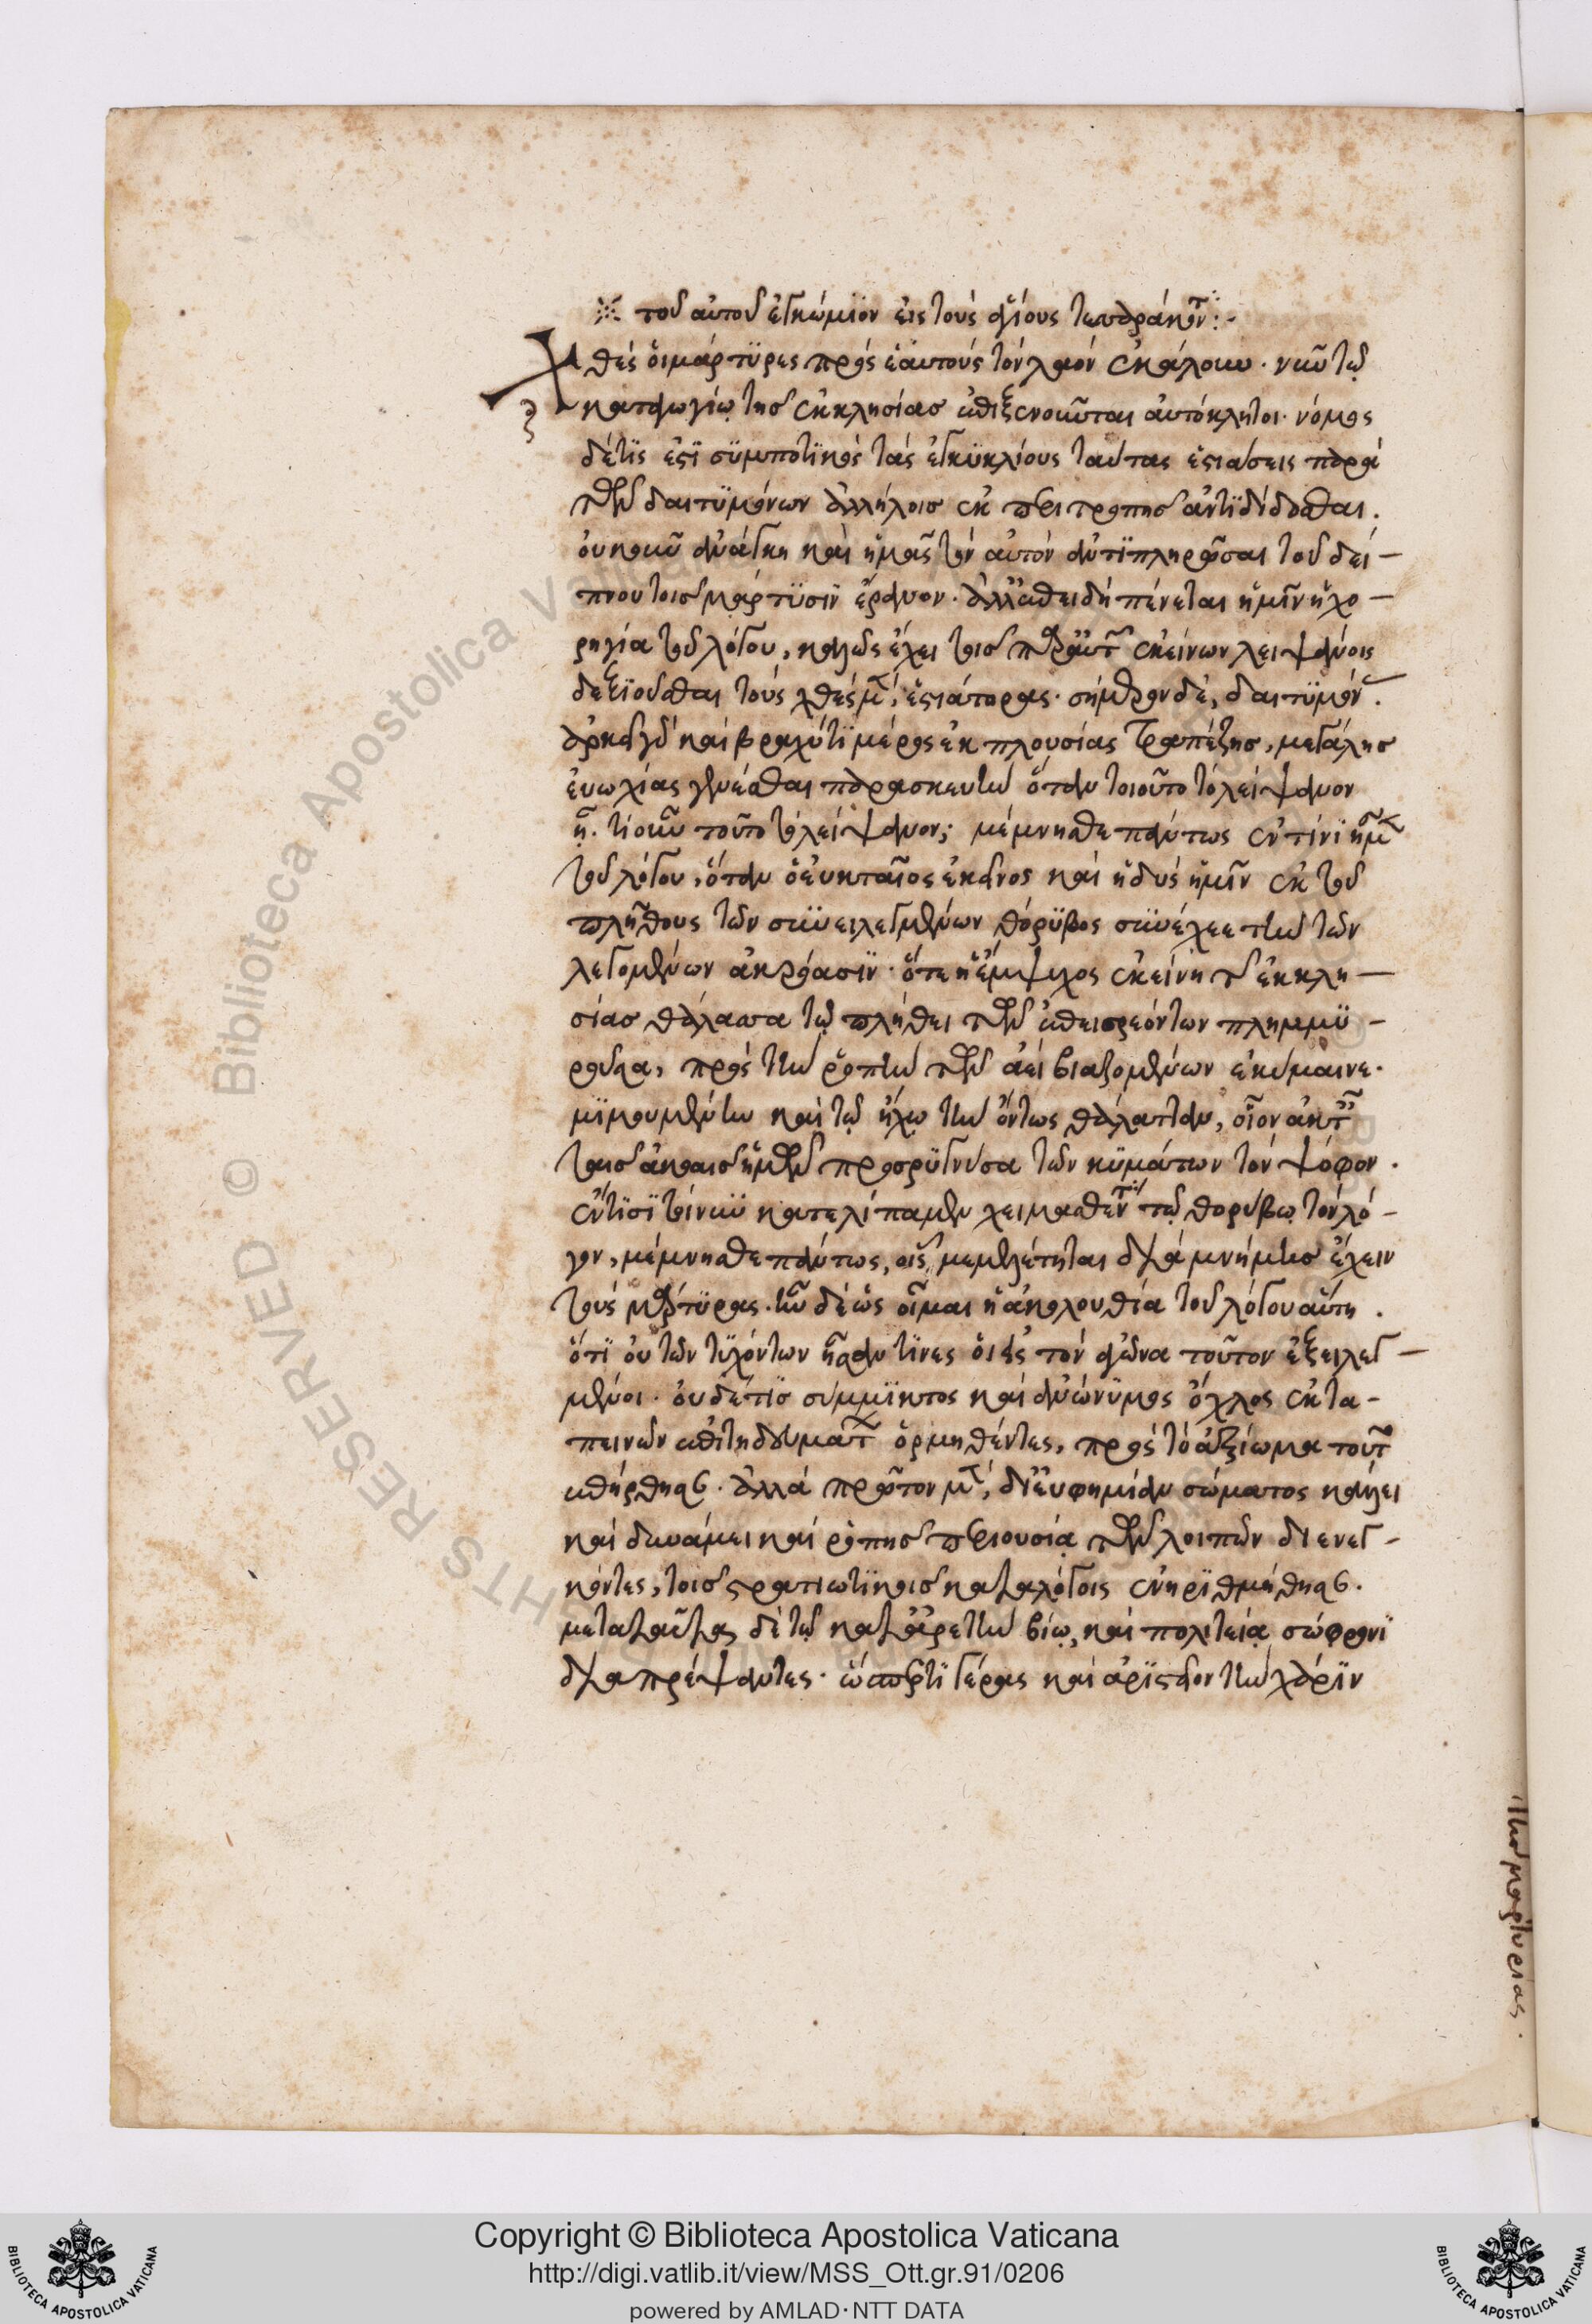 ※ τοῦ αὐτοῦ ἐγκώμϊον εἰς τοὺς ἁγίους τεσσαράκοντ:-
Χθὲς ὁι μάρτϋρες πρὸς ἑαυτοὺς τὸν λαὸν ἐκάλουν. νῦν τῷ
καταγωγίῳ τῆς ἐκκλησίας ἐπιξενοῦνται αὐτόκλητοι. νόμος
δέ τϊς ἐστὶ σϋμποτϊκὸς τὰς ἐγκϋκλίους ταύτας ἑστιάσεις παρὰ
τῶν δαιτϋμόνων ἀλλήλοις ἐκ περιτροπῆς ἀντϊδίδοσθαι.
οὐκοῦν ἀνάγκη καὶ ἡμᾶς τὸν αὐτὸν ἀντϊπληρῶσαι τοῦ δεί-
πνου τοῖς μάρτϋσϊν ἔρανον. ἀλλ' ἐπειδὴ πένεται ἡμῖν ἡ χο-
ρηγία τοῦ λόγου, καλῶς ἔχει τοῖς παρ' αὐτ ἐκείνων λειψάνοις
δεξϊοῦσθαι τοὺς χθὲς μὲν, ἑστιάτορας. σήμερον δὲ, δαιτϋμόν.
ἀρκεῖ γὰρ καὶ βραχύ τϊ μέρος ἐκ πλουσίας τραπέζης, μεγάλης
εὐωχίας γενέσθαι παρασκευὴν ὅταν τοιοῦτο τὸ λείψανον
ᾖ. τί οὖν τοῦτο τὸ λείψανον; μέμνησθε πάντως ἐν τίνϊ ἦμεν
τοῦ λόγου, ὅταν ὁ εὐκταῖος ἐκεῖνος καὶ ἡδὺς ἡμῖν ἐκ τοῦ
πλήθους τῶν συνειλεγμένων θόρϋβος συνέχεε τὴν τῶν
λεγομένων ἀκρόασϊν. ὅτε ἡ ἔμψυχος ἐκείνη τῆς ἐκκλη-
σίας θάλασσα τῷ πλήθει τῶν ἐπεισρεόντων πλημμϋ-
ροῦσα, πρὸς τὴν ῥοπὴν τῶν ἀεὶ βιαζομένων ἐκύμαινε.
μϊμουμένην καὶ τῷ ἤχῳ τὴν ὄντως θάλατταν, οἷον ἀκτ
ταῖς ἀκοαῖς ἡμῶν προσρϋγνῦσα τῶν κϋμάτων τὸν ψόφον.
ἐν τϊσϊ τοίνυν κατελίπαμεν χειμασθέντϊ τῷ θορύβῳ τὸν λό-
γον, μέμνησθε πάντως, οἷς μεμελέτηται διὰ μνήμης ἔχειν
τοὺς μάρτϋρας. ἦν δὲ ὡς οἶμαι ἡ ἀκολουθία τοῦ λόγου αὕτη.
ὅτϊ οὐ τῶν τϋχόντων ἦσαν τϊνες ὁι εἰς τὸν ἀγῶνα τοῦτον ἐξειλεγ-
μένοι. οὐδέ τϊς σύμμϊκτος καὶ ἀνώνϋμος ὄχλος ἐκ τα-
πεινῶν ἐπιτηδευμάτ ὁρμηθέντες, πρὸς τὸ ἀξίωμα τοῦτ
ἐπήρθησαν. ἀλλὰ πρῶτον μὲν, δι' εὐφημίαν σώματος κάλλει
καὶ δυνάμει καὶ ῥόπης περιουσίᾳ τῶν λοιπῶν διενεγ-
κόντες, τοῖς στρατιωτϊκοῖς καταλόγοις ἐνηρϊθμήθησαν.
μετὰ ταῦτα δὲ τῷ κατ' ἀρετὴν βίῳ, καὶ πολιτείᾳ σώφρονϊ
διαπρέψαντες. ὥσπέρ τϊ γέρας καὶ ἀρϊστεῖον τὴν χάρϊν
τῆς μαρτυρίας.
Copyright © Biblioteca Apostolica Vaticana
http://digi.vatlib.it/view/MSS_Ott.gr.91/0206
powered by AMLAD·NTT DATA